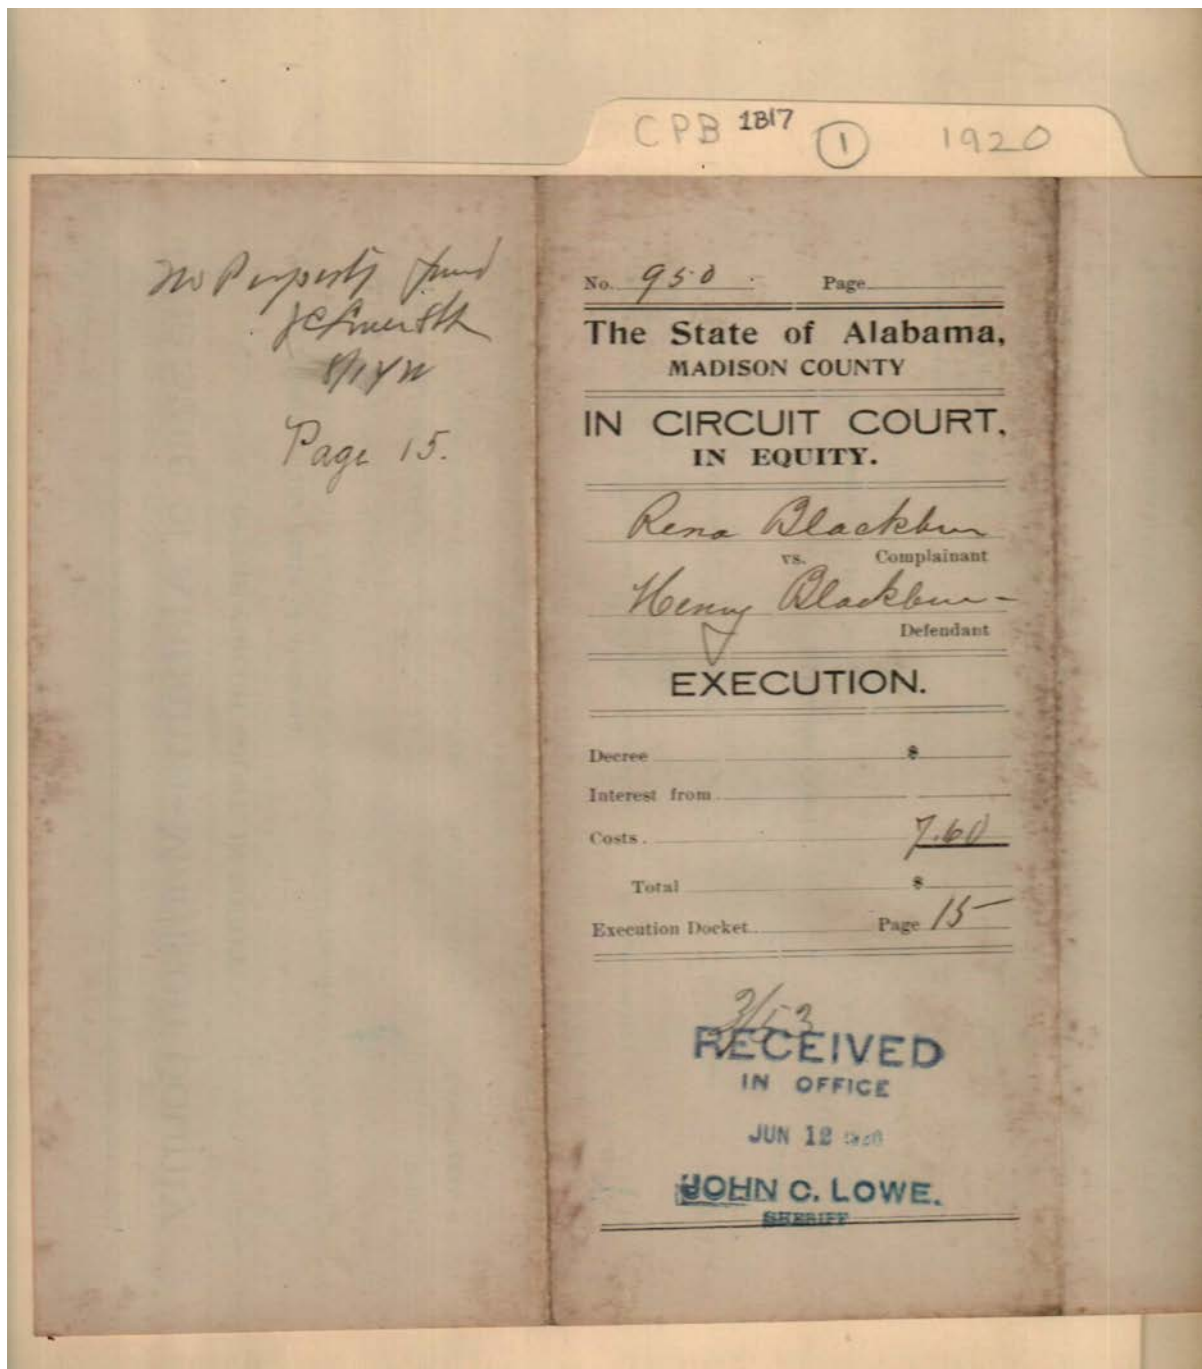 CPB 1B17 1 1920
No Property found
JC Lowe Shff
Page 15.
No. 950 Page
The State of Alabama,
MADISON COUNTY
IN CIRCUIT COURT,
IN EQUITY.
Rena Blackburn
vs. Complainant
Henry Blackburn
Defendant
EXECUTION.
Decree $
Interest from
Costs. 7.60
Total $
Execution Docket Page 15
3153
RECEIVED
IN OFFICE
JUN 12 1920
JOHN C. LOWE.
SHERIFF